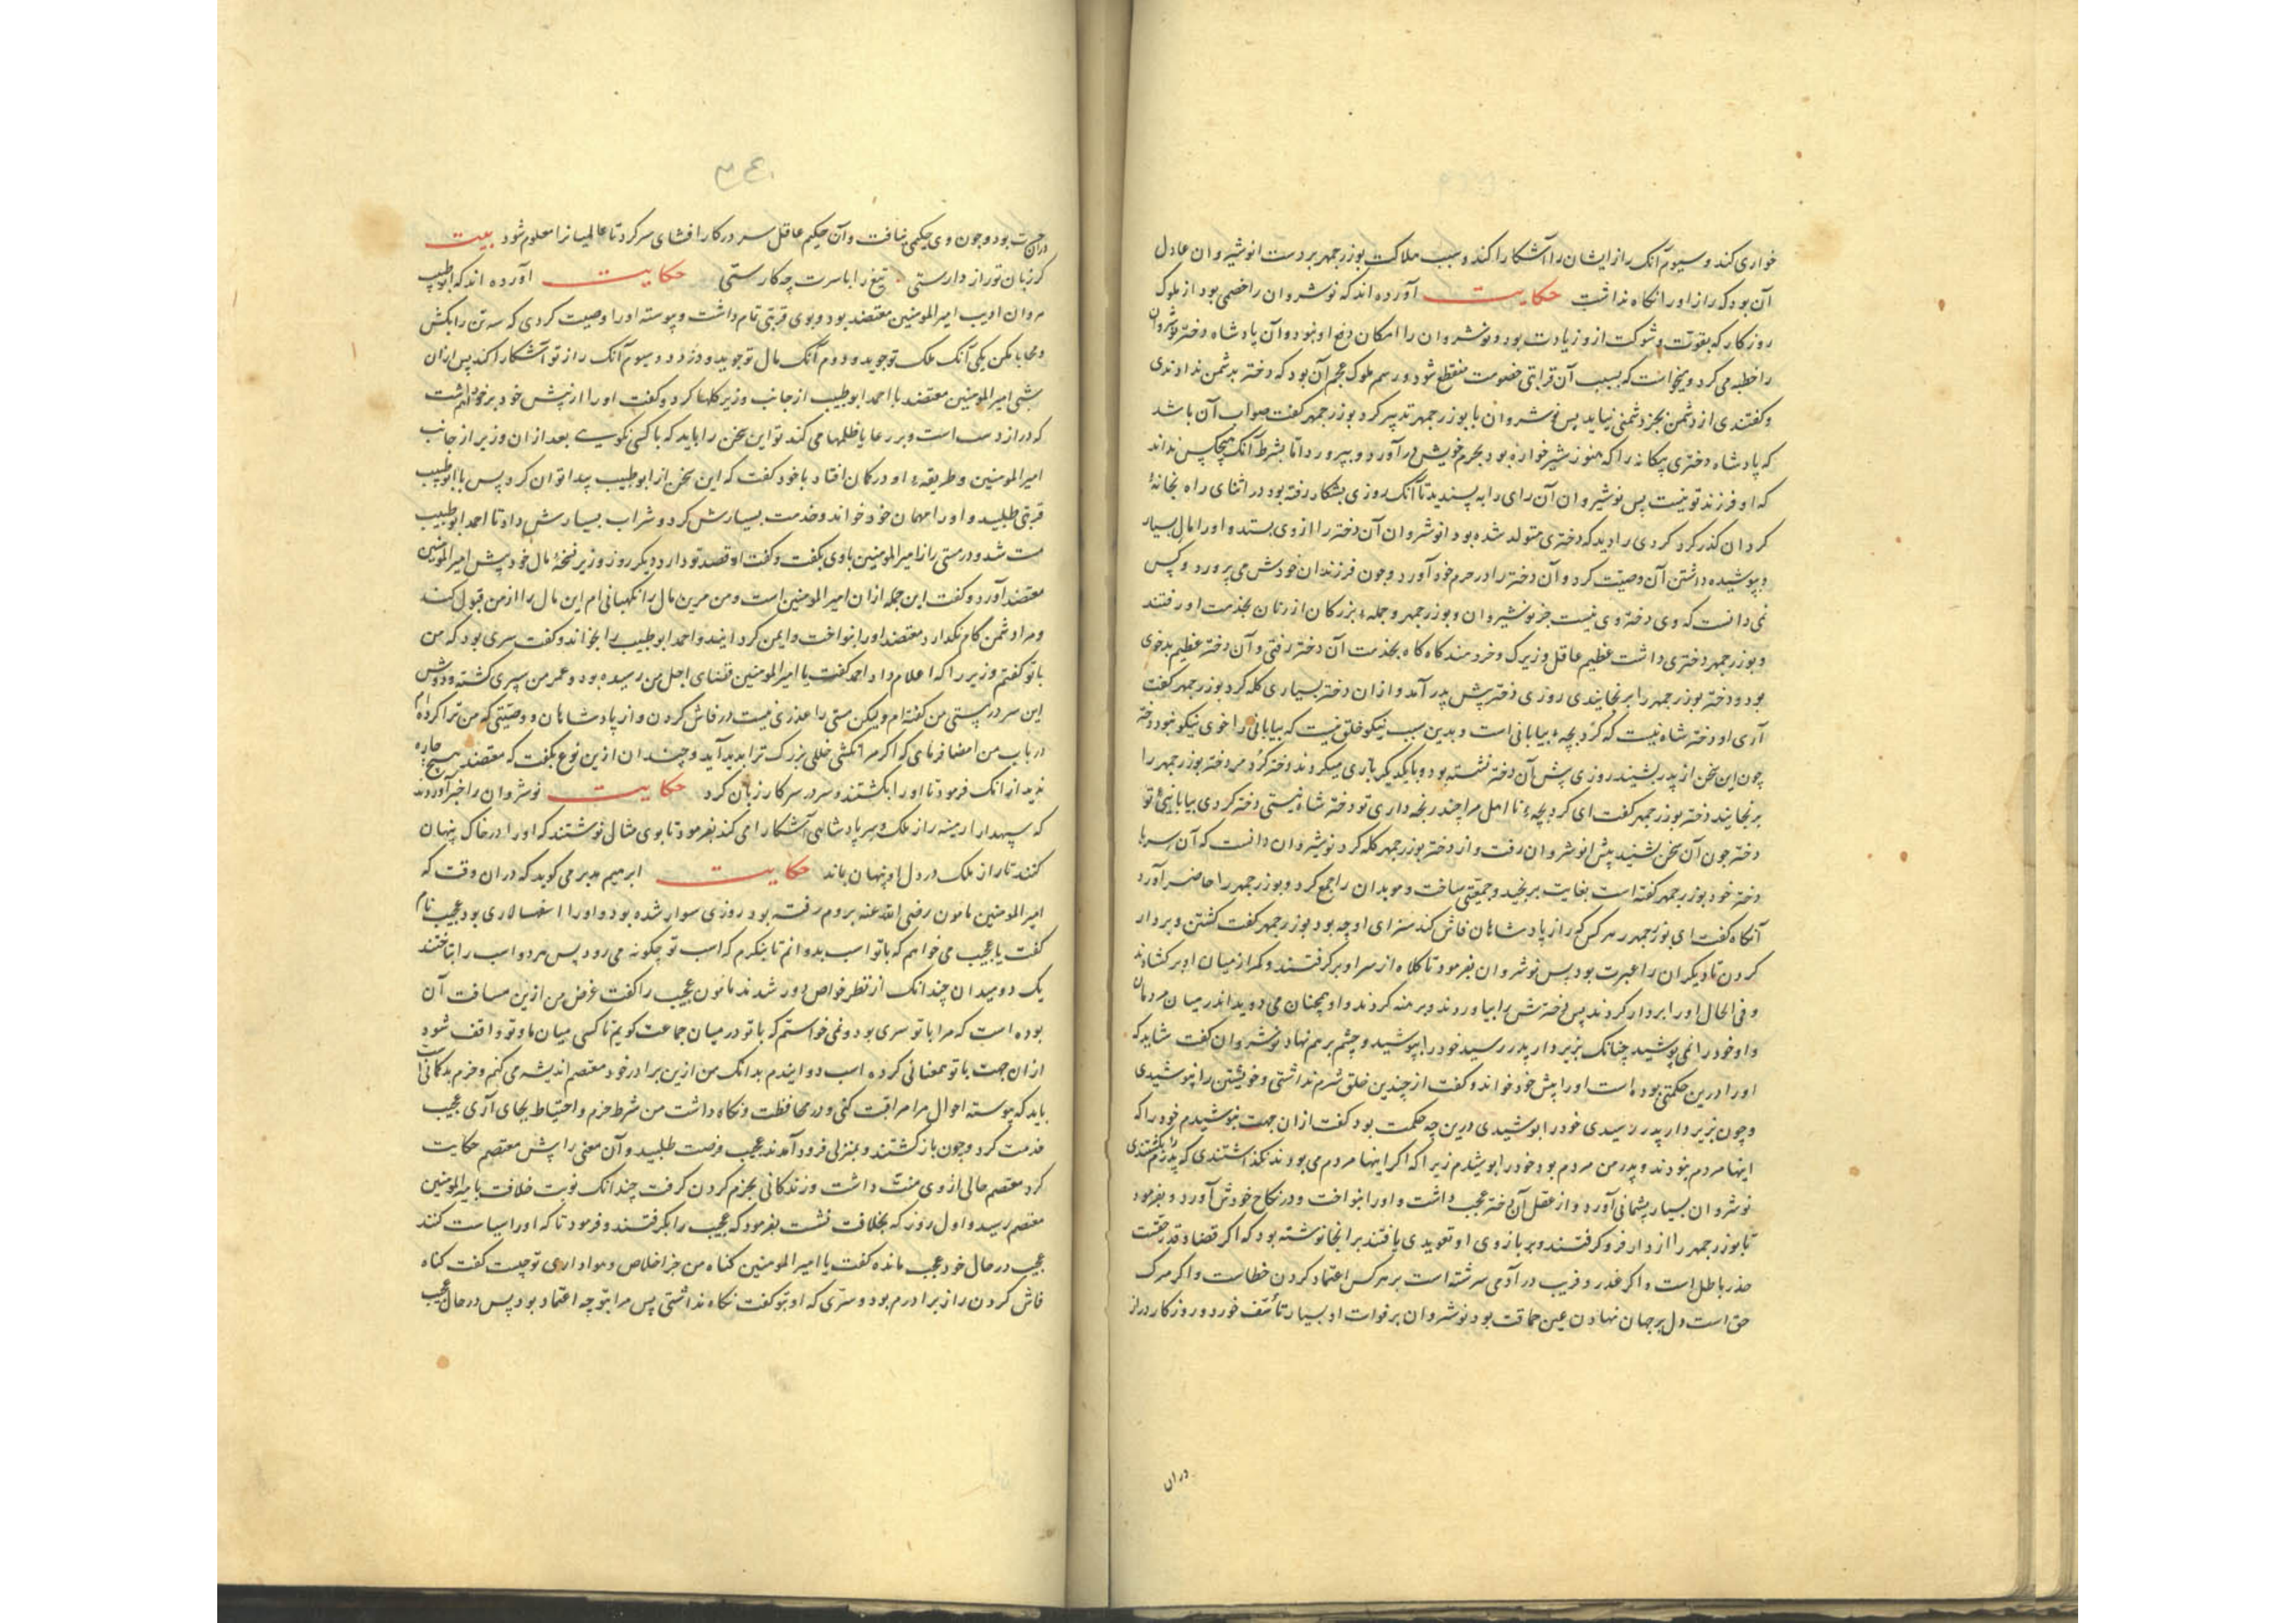 خواری کند و سیوم آنک راز ایشان را آشکارا کند و سبب هلاکت بوزرجمهر بر دست انوشیروان عادل
آن بود که راز او را نگاه نداشت حکایت آورده اند که نوشروان را خصمی بود از ملوک
روزگار که بقوت و شوکت ازو زیادت بود و نوشروان را امکان دفع او نبود و آن پادشاه دختر نوشروان
را خطبه می کرد و میخواست که بسبب آن قرابتی خصومت منقطع شود و رسم ملوک عجم آن بود که دختر بدشمن ندادندی
و گفتندی از دشمن بجز دشمنی نیاید پس نوشروان با بوزرجمهر تدبیر کرد بوزرجمهر گفت صواب آن باشد
که پادشاه دختری بیگانه را که هنوز شیرخواره بود بحرم خویش در آورد و بپرورد اما بشرط آنک هیچکس نداند
که او فرزند تو نیست پس نوشیروان آن رای را به پسندید تا آنک روزی بشکار رفته بود در اثنای راه بخانهٔ
کردان گذر کرد کردی را دید که دختری متولد شده بود انوشروان آن دختر را از وی بستد و او را مال بسیار
و پوشیده داشتن آن وصیت کرد و آن دختر را در حرم خود آورد و چون فرزندان خودش می پرورد و کس
نمی دانست که وی دختر وی نیست جز نوشیروان و بوزرجمهر و جمله بزرکان از زنان بخدمت او رفتند
و بوزرجمهر دختری داشت عظیم عاقل و زیرک و خردمند گاه گاه بخدمت آن دختر رفتی و آن دختر عظیم بدخوی
بود و دختر بوزرجمهر را برنجانیدی روزی دختر پیش پدر آمد و از ان دختر بسیاری گله کرد بوزرجمهر گفت
آری او دختر شاه نیست که کرد بچه بیابانی است و بدین سبب نیکو خلق نیست که بیابانی را خوی نیکو نبود دختر
چون این سخن از پدر بشنید روزی پیش آن دختر نشسته بود و با یکدیگر بازی میکردند دختر کرد مر دختر بوزرجمهر را
برنجانید دختر بوزرجمهر گفت ای کرد بچهٔ نا اهل مرا چند رنجه داری تو دختر شاه نیستی دختر کردی بیابانیئ تو
دختر چون آن سخن بشنید پیش انوشروان رفت و از دختر بوزرجمهر گله کرد نوشیروان دانست که آن سر با
دختر خود بوزرجمهر گفته است بغایت برنجید و جمعیتی ساخت و موبدان را جمع کرد و بوزرجمهر را حاضر آورد
آنگاه گفت ای بوزرجمهر هر کس که راز پادشاهان فاش کند سزای او چه بود بوزرجمهر گفت کشتن و بر دار
کردن تا دیگران را عبرت بود پس نوشروان بفرمود تا کلاه از سر او برگرفتند و کمر از میان او برگشادند
و فی الحال او را بر دار کردند پس دخترش را بیاوردند و برهنه کردند و او همچنان می دوید اندر میان مردمان
و او خود را نمی پوشید چنانک بزیر دار پدر رسید خود را بپوشید و چشم بر هم نهاد نوشروان گفت شاید که
او را درین حکمتی بوده است او را پیش خود خواند و گفت از چندین خلق شرم نداشتی و خویشتن را نپوشیدی
و چون بزیر دار پدر رسیدی خود را پوشیدی درین چه حکمت بود گفت از ان جهت نپوشیدم خود را که
اینها مردم نبودند و پدر من مردم بود خود را پوشیدم زیرا که اگر اینها مردم می بودند نگذاشتندی که پدرم را بکشتندی
نوشروان بسیار پشمانی آورد و از عقل آن دختر عجب داشت و او را بنواخت و در نکاح خودش آورد و بفرمود
تا بوزرجمهر را از دار فرو گرفتند و بر بازوی او تعویذی یافتند برانجا نوشته بود که اگر قضا و قدر حقست
حذر باطل است و اگر غدر و فریب در آدمی سرشته است بر هر کس اعتماد کردن خطاست و اگر مرگ
حق است دل بر جهان نهادن عین حماقت بود نوشروان بر فوات او بسیار تأسف خورد و روزگار دراز
دران
دران حسرت بود و چون وی حکیمی نیافت و آن حکیم عاقل سر در کار افشای سر کرد تا عالمیانرا معلوم شود بیت
گر زبان تو راز دارستی تیغ را با سرت چه کارستی حکایت آورده اند که ابو طیب
مروان ادیب امیرالمومنین معتضد بود و بوی قربتی تمام داشت و پیوسته او را وصیت کردی که سه تن را بکش
و محابا مکن یکی آنک ملک تو جوید و دوم آنک مال تو جوید و دزدد و سیوم آنک راز تو آشکارا کند پس ازان
شبی امیرالمومنین معتضد با احمد ابو طیب از جانب وزیر گلها کرد و گفت او را از پیش خود بر خواهم داشت
که دراز دست است و بر رعایا ظلمها می کند تو این سخن را باید که با کسی نگویی بعد از ان وزیر از جانب
امیرالمومنین و طریقهٔ او در گمان افتاد با خود گفت که این سخن از ابو طیب پیدا توان کرد پس با ابو طیب
قربتی طلبید و او را مهمان خود خواند و خدمت بسیارش کرد و شراب بسیارش داد تا احمد ابو طیب
مست شد و در مستی راز امیرالمومنین با وی بگفت و گفت او قصد تو دارد دیگر روز وزیر نسخهٔ مال خود پیش امیرالمومنین
معتضد آورد و گفت این جمله ازان امیرالمومنین است و من مرین مال را نگهبانی ام این مال را از من قبول کند
و مرا دشمن کام نگذارد معتضد او را بنواخت و ایمن گردانید و احمد ابو طیب را بخواند و گفت سری بود که من
با تو گفتم وزیر را که اعلام داد احمد گفت یا امیرالمومنین قضای اجل من رسیده بود و عمر من سپری گشته و دوش
این سر در مستی من گفته ام ولیکن مستی را عذری نیست در فاش کردن راز پادشاهان و وصیتی که من ترا کرده ام
در باب من امضا فرمای که اگر مرا نکشی خللی بزرگ ترا پدید آید و چندان ازین نوع بگفت که معتضد هیچ چاره
ندید از انک فرمود تا او را بکشتند و سر در سر کار زبان کرد حکایت نوشروان را خبر آوردند
که سپهدار ارمینه راز ملک و سر پادشاهی آشکارا می کند بفرمود تا بوی مثال نوشتند که او را در خاک پنهان
کنند تا راز ملک در دل او پنهان ماند حکایت ابرهیم مدبر می گوید که دران وقت که
امیرالمومنین مامون رضی الله عنه بروم رفته بود روزی سوار شده بود و او را اسفهسالاری بود عجیب نام
گفت یا عجیب می خواهم که با تو اسب بدوانم تا بنگرم که اسب تو چگونه می رود پس هر دو اسب را بتاختند
یک دو میدان چندانک از نظر خواص دور شدند مامون عجیب را گفت غرض من ازین مسافت آن
بوده است که مرا با تو سری بود و نمی خواستم که با تو در میان جماعت گویم تا کسی میان ما و تو واقف شود
ازان جهت با تو همعنانی کرده اسب دوانیدم بدانک من ازین برادر خود معتصم اندیشه می کنم و خرم بدگمانی است
باید که پیوسته احوال مرا مراقبت کنی و در محافظت و نگاه داشت من شرط حزم و احتیاط بجای آری عجیب
خدمت کرد و چون باز گشتند و بمنزلی فرود آمدند عجیب فرصت طلبید و آن معنی را پیش معتصم حکایت
کرد معتصم حالی از وی منت داشت و زندگانی بحزم کردن گرفت چندانک نوبت خلافت بامیرالمومنین
معتصم رسید و اول روز که بخلافت نشست بفرمود که عجیب را بگرفتند و فرمود تا که او را سیاست کنند
عجیب در حال خود عجب مانده گفت یا امیرالمومنین گناه من جز اخلاص و هواداری تو چیست گفت گناه
فاش کردن راز برادرم بود و سری که او بتو گفت نگاه نداشتی پس مرا بتو چه اعتماد بود پس در حال عجیب